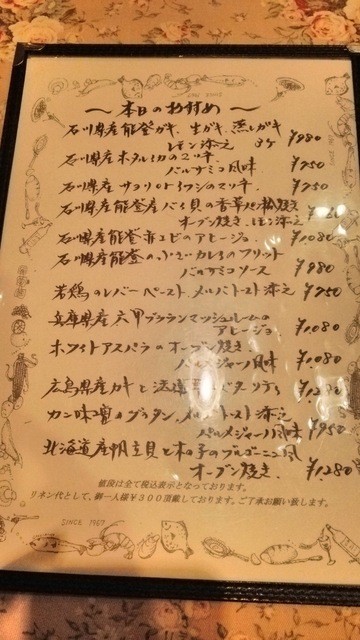 ～本日のおすすめ～
石川県産能登ガキ、生ガキ、蒸しガキ
レモン添え 3ケ ¥980
石川県産ホタルイカのマリネ、
バルサミコ風味 ¥750
石川県産 サヨリ のマリネ、 ¥750
石川県産能登産バイ貝の香草パン粉焼き
オーブン焼き、レモン添え
石川県産能登赤エビのアヒージョ ¥1,080
石川県産能登の小さいカレイのフリット
バルサミコソース ¥980
若鶏のレバーペースト、メルバトースト添え ¥750
兵庫県産六甲ブラウンマッシュルームの
アヒージョ ¥1,080
ホワイトアスパラのオーブン焼き、
パルメジャーノ風味 ¥1,080
広島県産カキと バターソテー
カニ味噌のグラタン、メルバトースト添え
パルメジャーノ風味 ¥950
北海道産帆立貝と木の子のブルゴーニュ風
オーブン焼き、 ¥1,280
値段は全て税込表示となっております。
リネン代として、御一人様¥300頂戴しております。ご了承お願い致します。
SINCE 1967